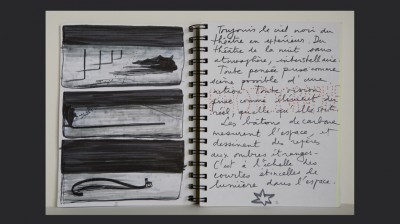 Toujours le ciel noir du
théâtre en extérieur. Du
théâtre de la nuit sans
atmosphère, interstellaire.
Toute pensée comme
scène possible d'une
action. Toute
comme élément du
réel, quelle qu'elle soit.
Les bâtons de carbone
mesurent l'espace, et
dessinent des repères
aux ombres étranges.
C'est à l'échelle des
courtes étincelles de
lumière dans l'espace.